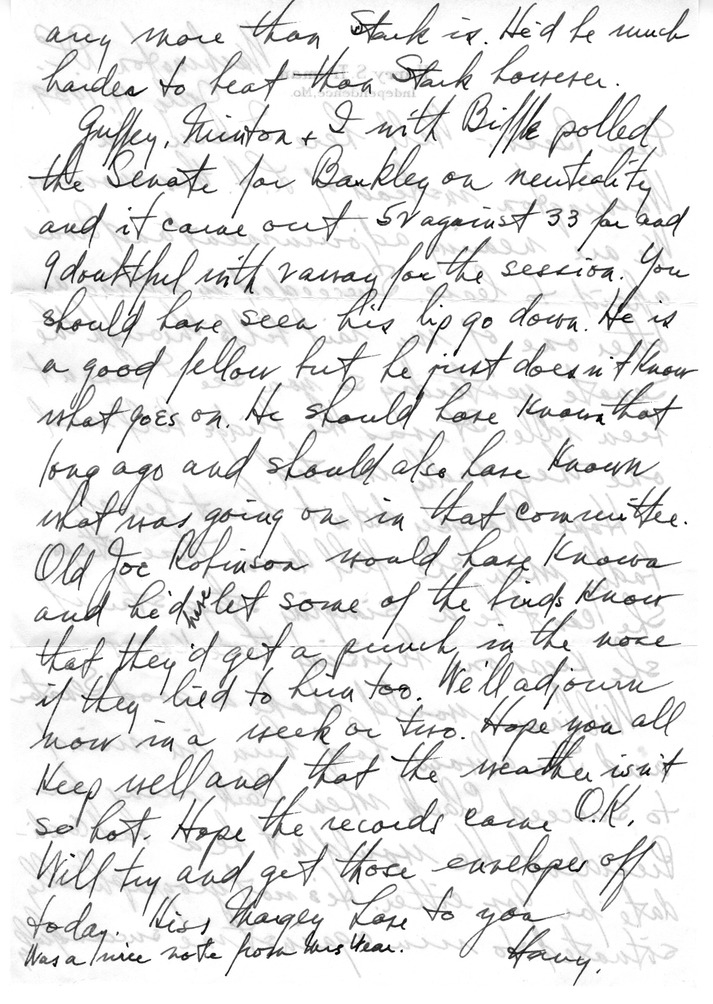 any more than Stark is. He'd be much
harder to beat than Stark however.
Guffey, Minton + I with Biffle polled
the Senate for Barkley on neutrality
and it came out 52 against 33 for and
9 doubtful with 2 away for the session. You
should have seen his lip go down. He is
a good fellow but he just doesn't know
what goes on. He should have known that
long ago and should also have known
what was going on in that committee.
Old Joe Robinson would have known
and he'd have let some of the birds know
that they'd get a punch in the nose
if they lied to him too. We'll adjourn
now in a week or two. Hope you all
keep well and that the weather isn't
so hot. Hope the records came O.K.
Will try and get those envelopes off
today. Kiss Margey Love to you
Was a nice note from Mrs Wear.
Harry.